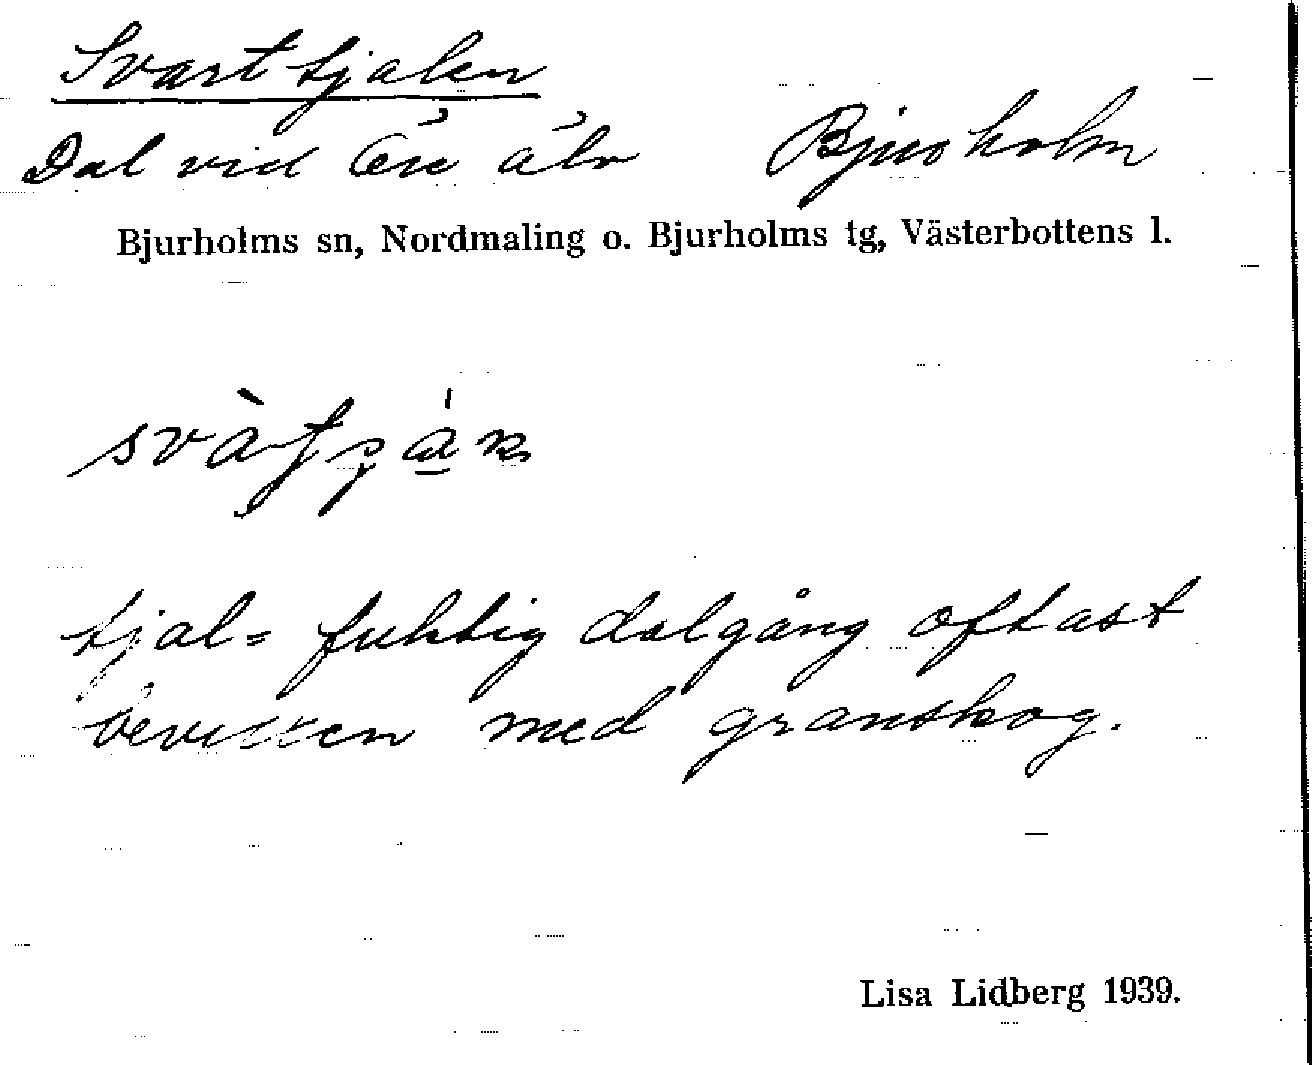 Svarttjalen
Dal vid Öre älv Bjurholm
Bjurholms sn, Nordmaling o. Bjurholms tg, Västerbottens l.
tjal = fuktig dalgång oftast
bevuxen med granskog.
Lisa Lidberg 1939.